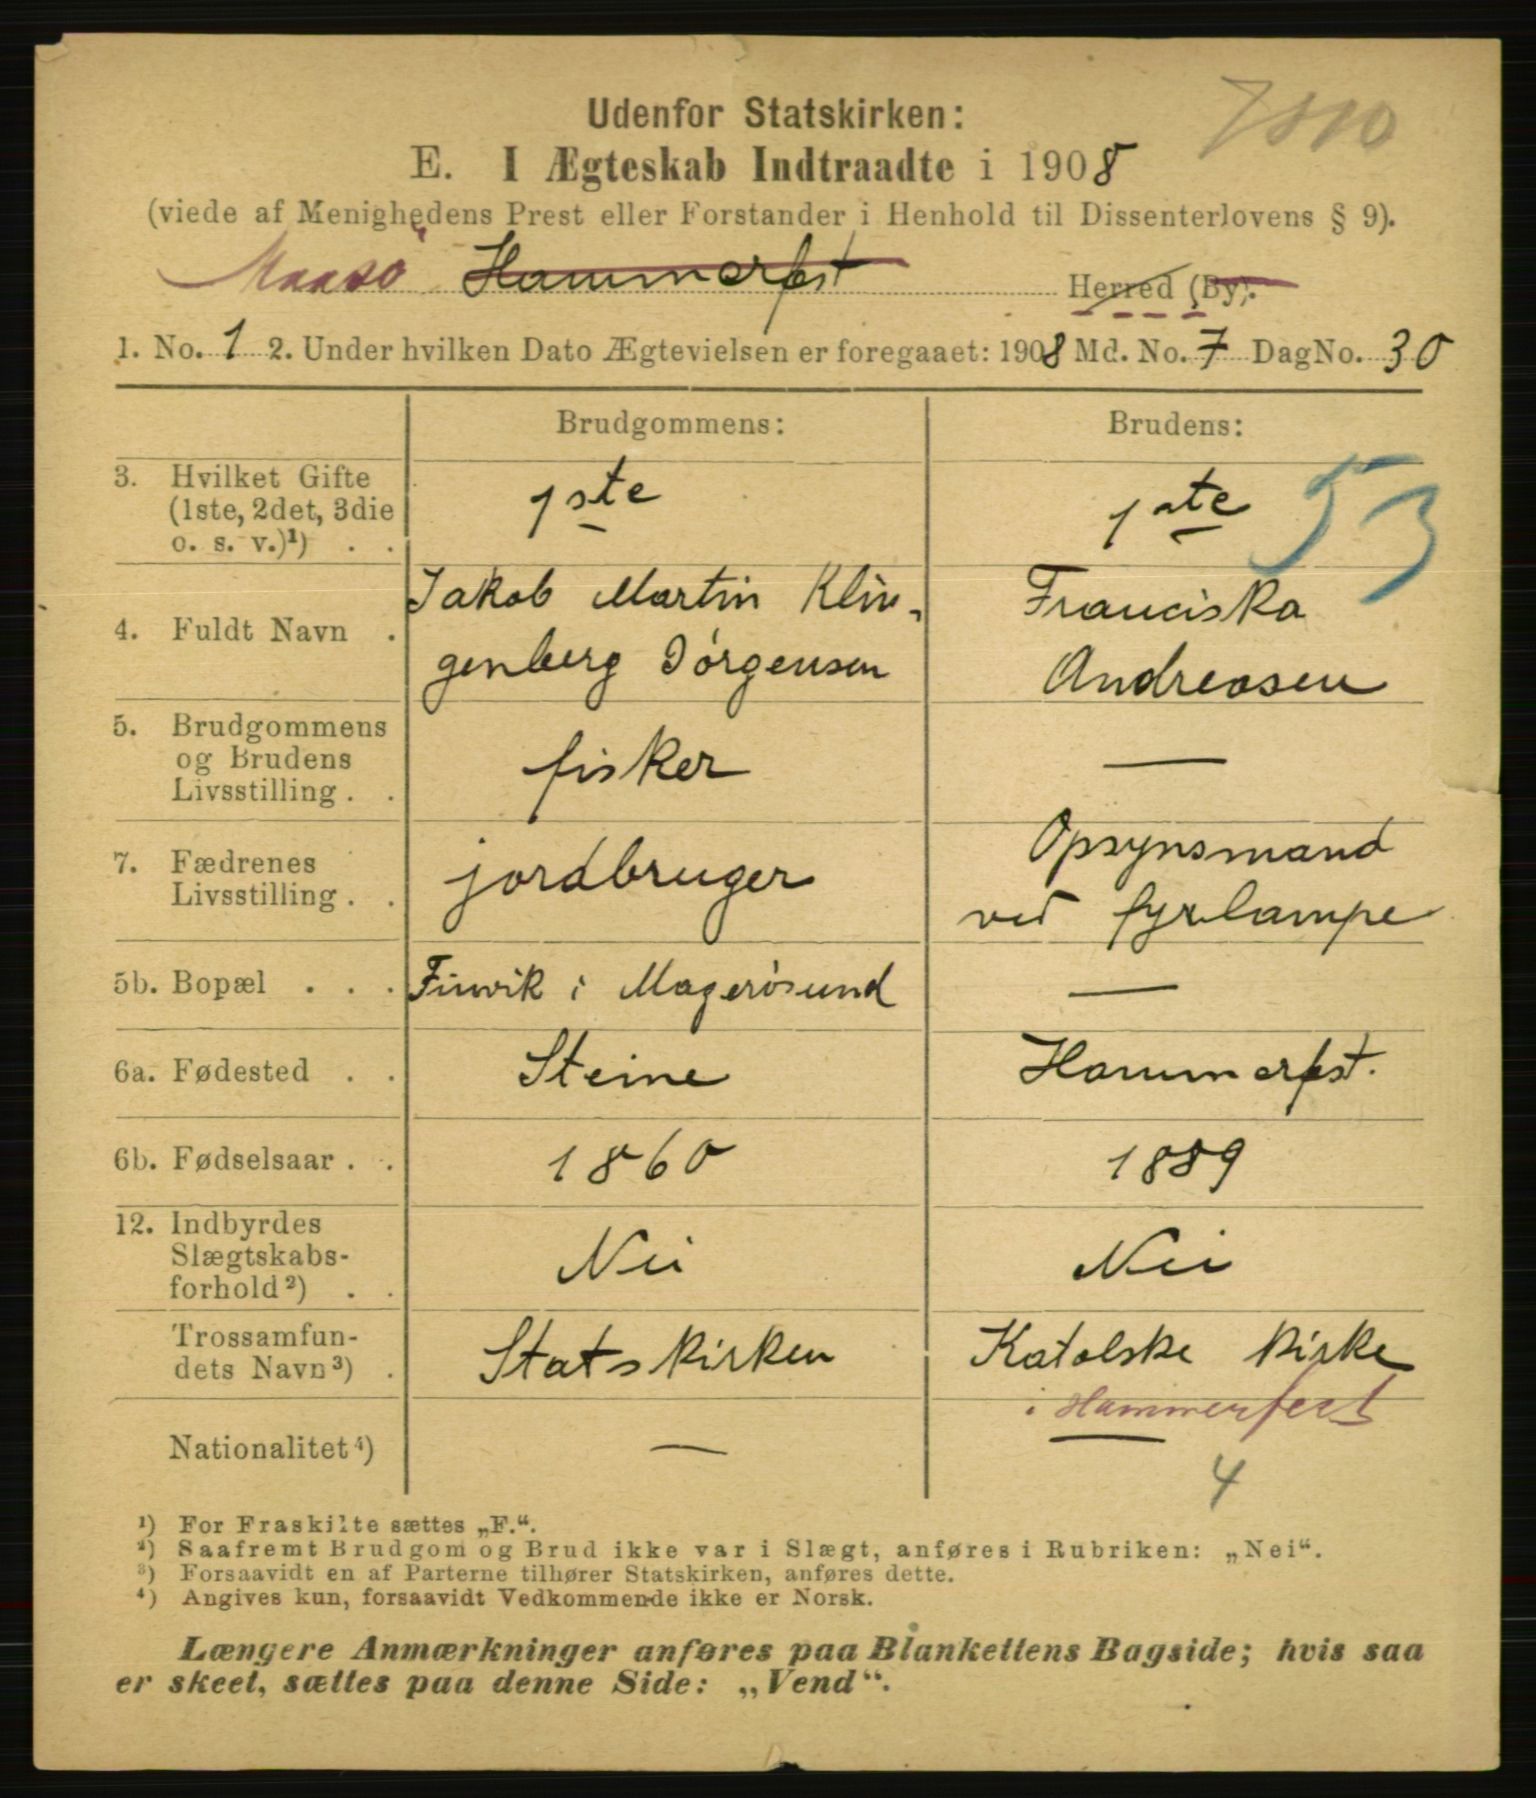 Udenfor Statskirken:
E. I Ægteskab Indtraadte i 1908
(viede af Menighedens Prest eller Forstander i Henhold til Dissenterlovens § 9).
Maasø Hammerfest Herred (By).
1. No. 1 2. Under hvilken Dato Ægtevielsen er foregaaet: 1908 Md. No. 7 Dag No. 30
Brudgommens: Brudens:
3. Hvilket Gifte
(1ste, 2det, 3die
o. s. v.)¹) . .
1ste 1ste 53
4. Fuldt Navn .
Jakob Martin Klin-
genberg Jørgensen
Franciska
Andreasen
5. Brudgommens
og Brudens
Livsstilling . .
fisker —
7. Fædrenes
Livsstilling . .
jordbruger
Opsynsmand
ved fyrlampe
5b. Bopæl . . . Finvik i Magerösund —
6a. Fødested . . Steine Hammerfest.
6b. Fødselsaar . . 1860 1889
12. Indbyrdes
Slægtskabs-
forhold²) . .
Nei Nei
Trossamfun-
dets Navn³) .
Statskirken Katolske kirke
i Hammerfest
Nationalitet⁴) — —
4
¹) For Fraskilte sættes „F.“.
²) Saafremt Brudgom og Brud ikke var i Slægt, anføres i Rubriken: „Nei“.
³) Forsaavidt en af Parterne tilhører Statskirken, anføres dette.
⁴) Angives kun, forsaavidt Vedkommende ikke er Norsk.
Længere Anmærkninger anføres paa Blankettens Bagside; hvis saa
er skeet, sættes paa denne Side: „Vend“.